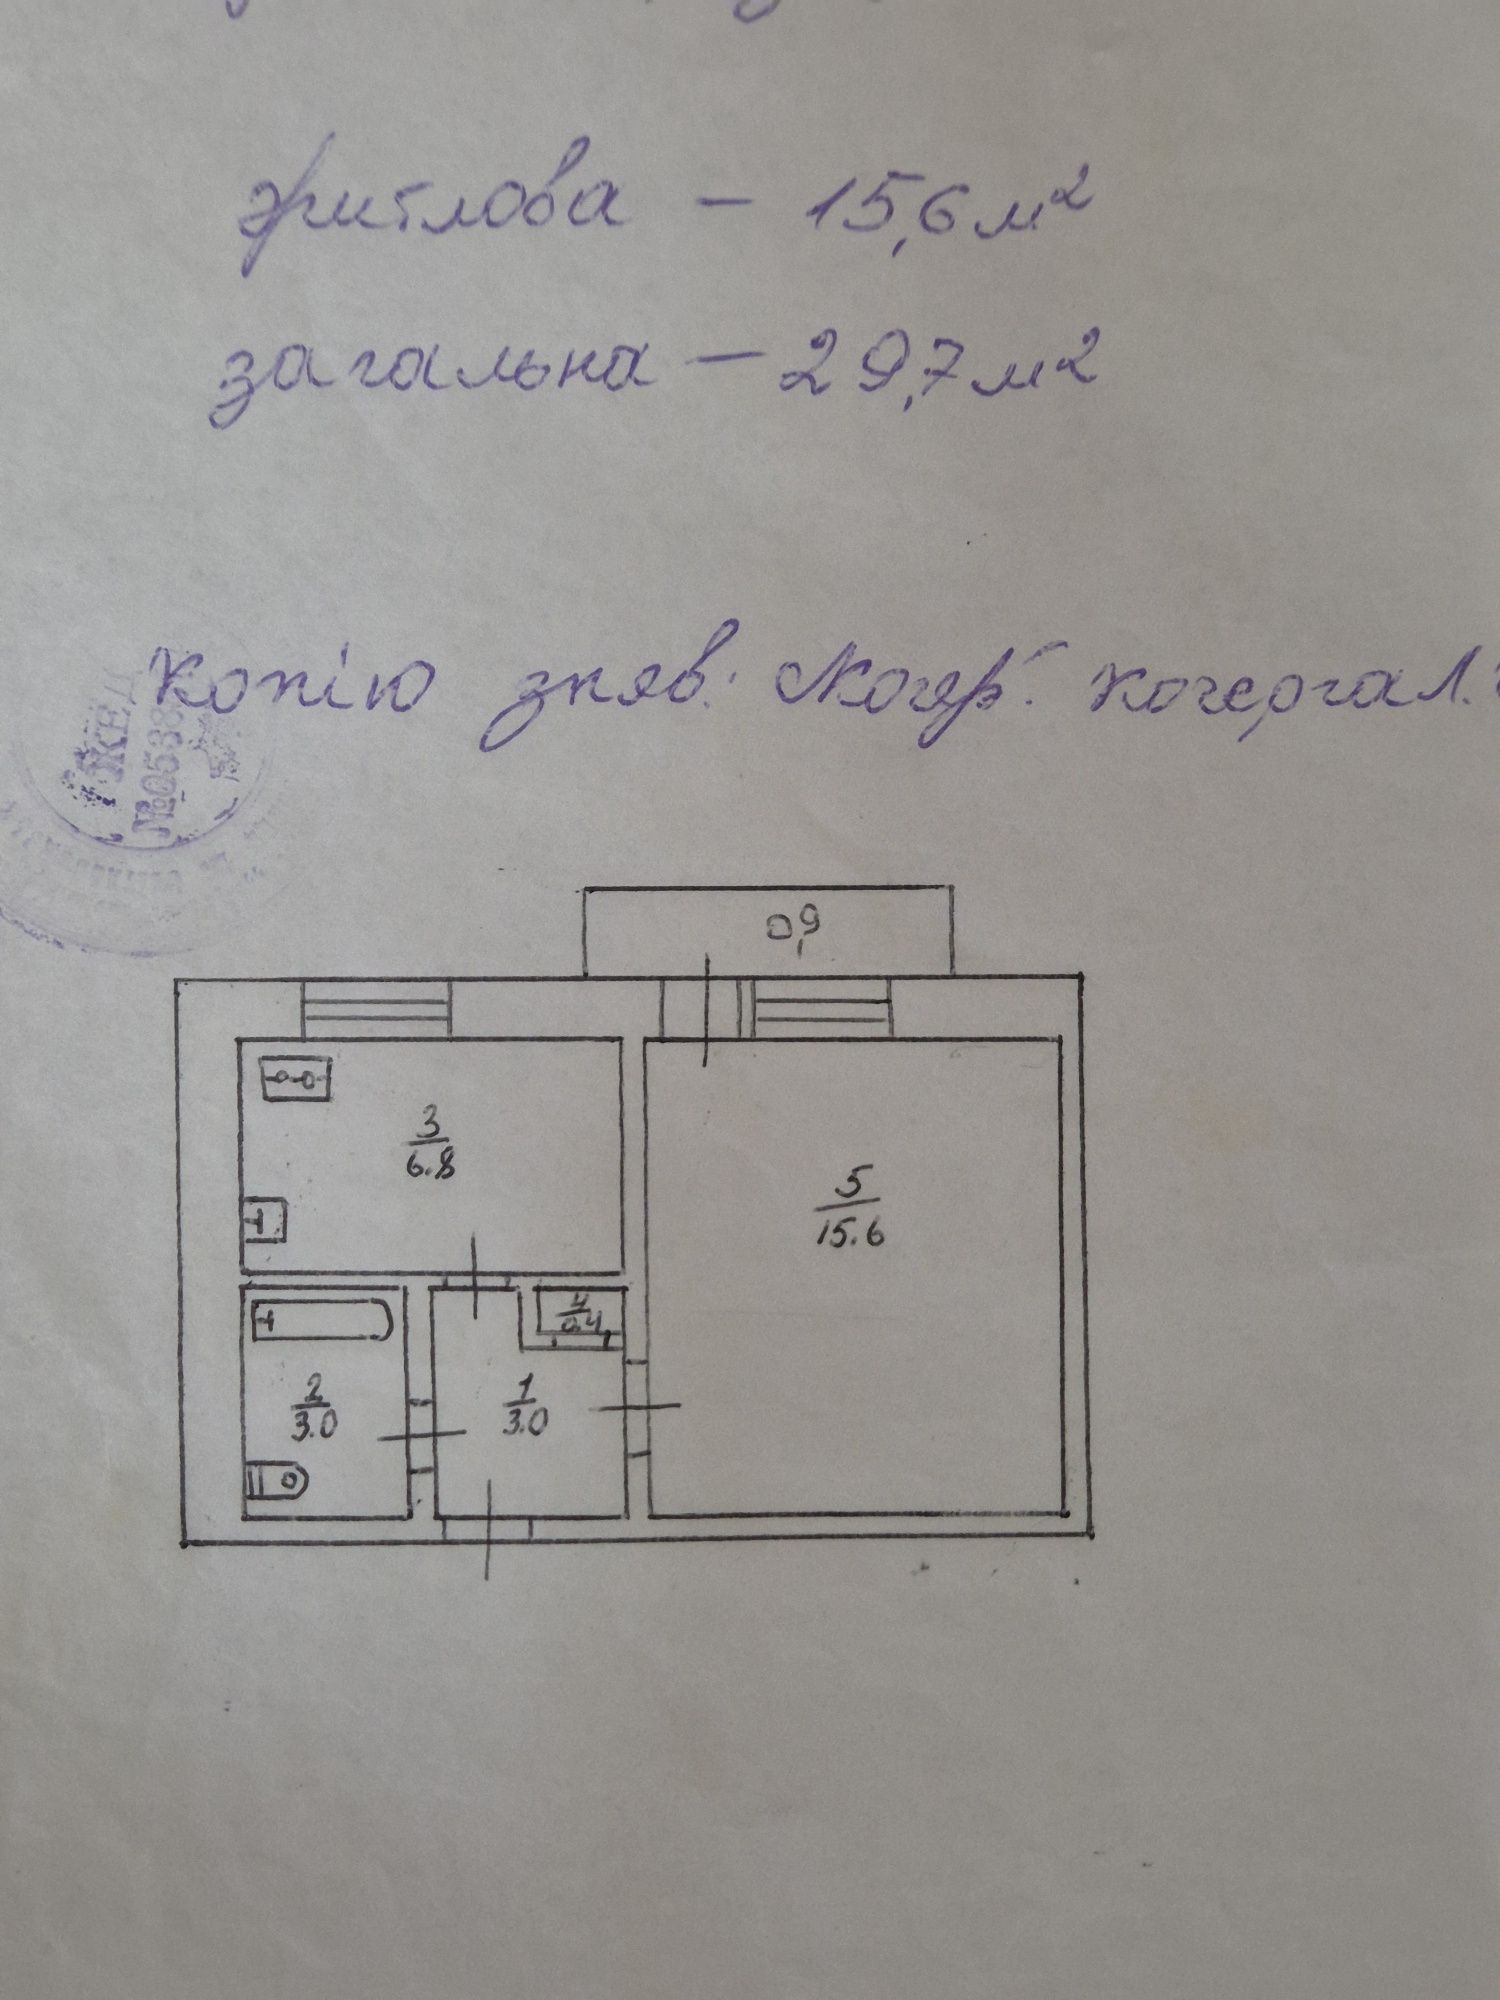 житлова – 15,6 м²
загальна – 29,7 м²
Копію зняв: Кочергал.
ЖЕД
№0538
0,9
3
6.8
5
15.6
4
0.4
2
3.0
1
3.0